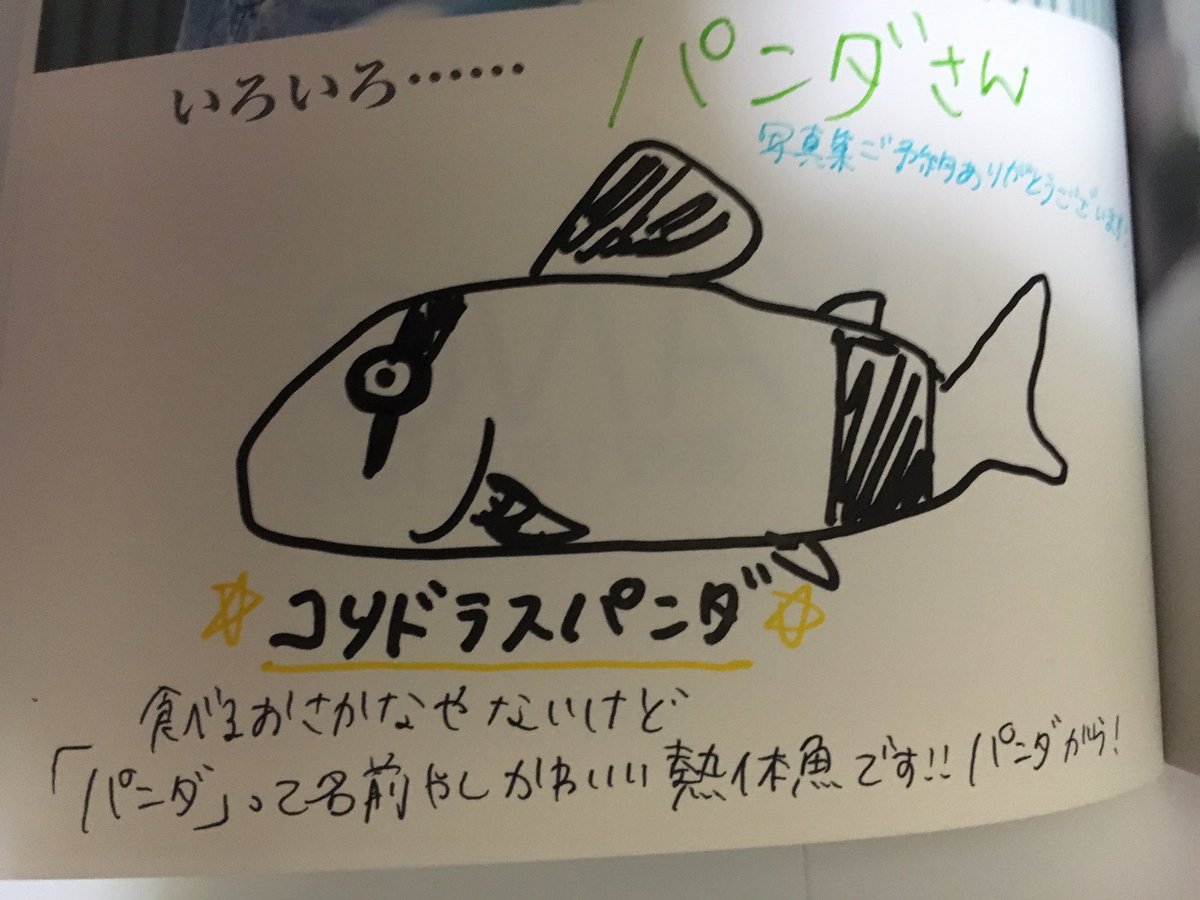 いろいろ……
パンダさん
写真集ご予約ありがとうございます!
コリドラスパンダ
食べるおさかなやないけど
「パンダ」って名前やしかわいい熱体魚です!!パンダがら!